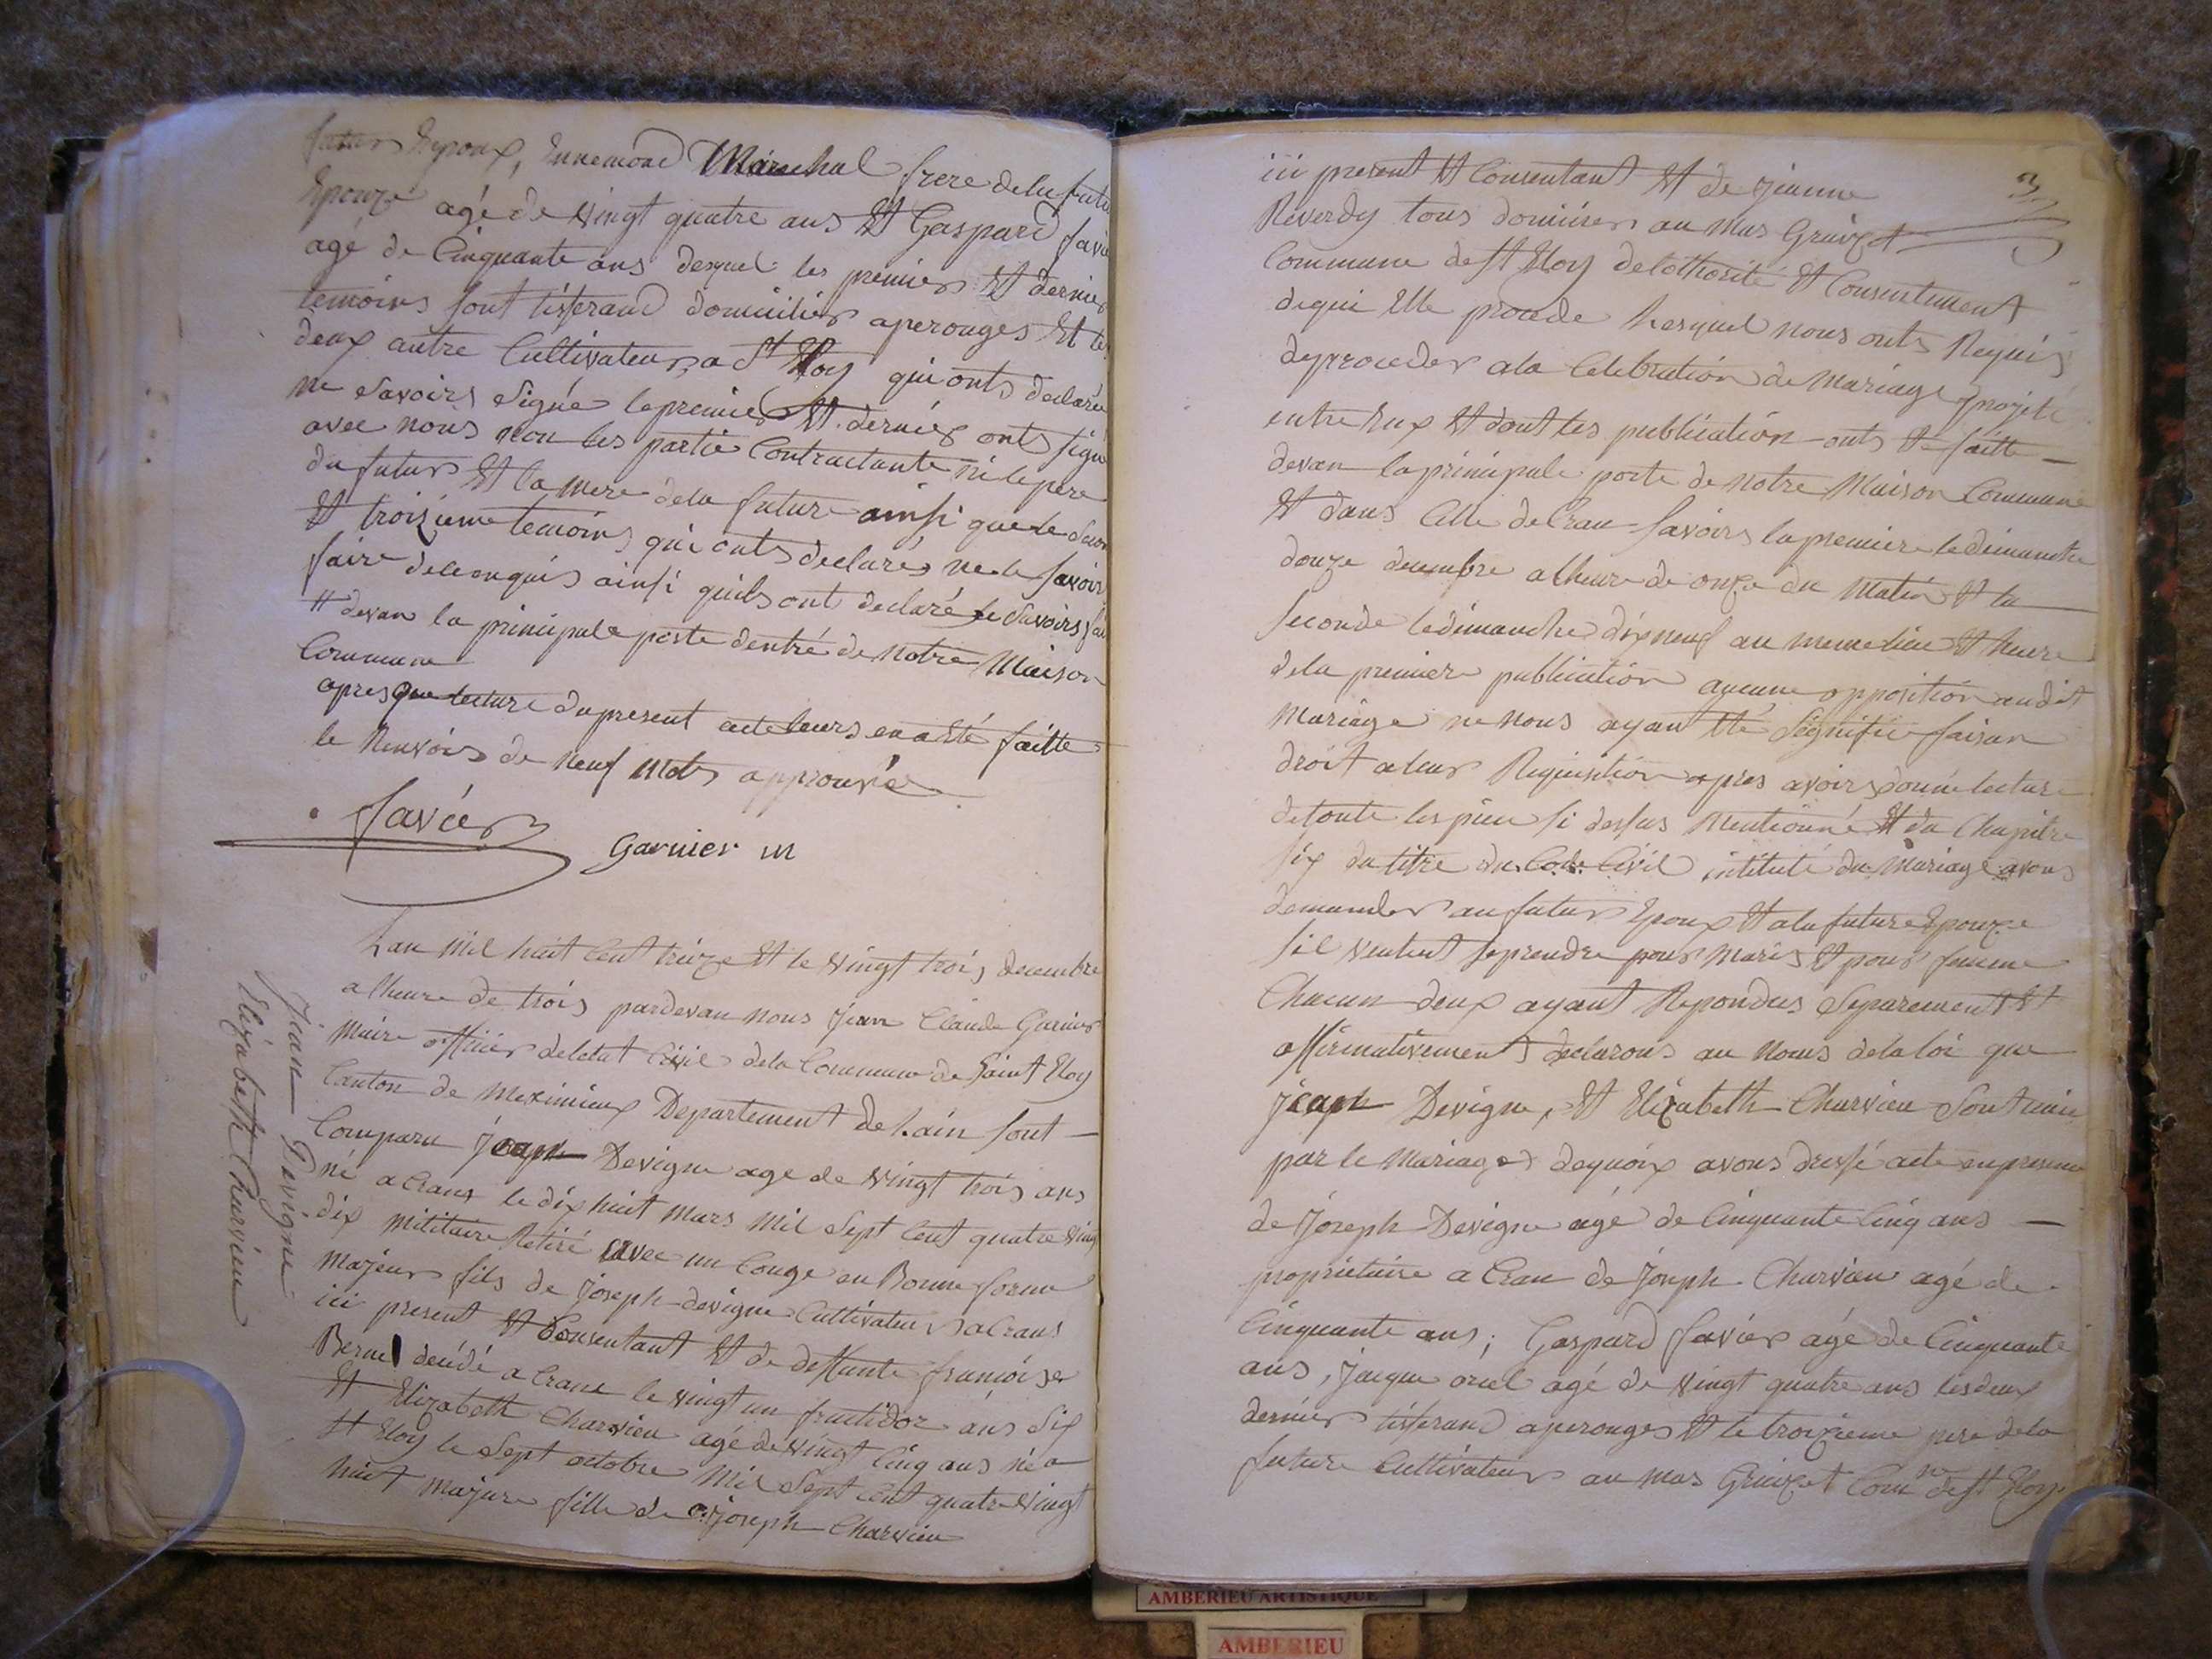 futur Epoux, Ennemond Marechal frere dela futur
Epouze agé de vingt quatre ans Et Gaspard favie
agé de Cinquante ans desquel les premier Et dernier
temoins sont tisserand domicilier aperouges Et les
deux autre Cultivateur, a St Eloy qui onts declarée
ne Savoirs Signée le premier Et dernier onts signé
avec nous non les partie Contractante ni le pere
du futur Et la mere dela future ainsi que le Secon
Et troizieme temoins qui onts declarés ne le Savoir
faire dece requis ainsi quils ont declaré le Savoirs
# devan la principale porte dentré de notre Maison
Commune
apres que lecture du present acte leurs en a Eté faitte
le Renvois de neuf mots approuvée
favier
Garnier m
Lan mil huit Cent treize Et le vingt trois decembre
a lheure de trois pardevan nous jean Claude Garnier
Maire officier deletat Civil dela Commune de Saint Eloy
Canton de Meximieux Departement de Lain sont
Comparu joseph Devigne age de vingt trois ans
né a Crans le dix huit mars mil Sept Cent quatre ving
dix militaire Retiré avec un Conge en Bonne forme
majeur fils de joseph devigne Cultivateur a Crans
ici present Et Consentant Et de deffunte françoise
Bernel décédé a Crans le vingt un fructidor ans Six
Et Elizabeth Charvieu agé de vingt Cinq ans né a
St Eloy le Sept octobre Mil Sept Cent quatre vingt
huit majure fille de joseph Charvieu
Jean Devigne
Elizabeth Charvieu
3
ici present Et Consentant Et de jeanne
Reverdy tous domicier au Mas Grivzet
Commune de St Eloy delothorité Et Consentement
dequi Elle procede Lesquel nous onts Requis
deproceder ala Celebration de mariage projeté
entre Eux Et dont les publication onts Eté faitte
devan la principale porte de notre Maison Commune
Et dans Celle de Cran Savoirs la premiere le dimanche
douze decembre alheure de onze du Matin Et la
Seconde le dimanche dix neuf au meme lieu Et heure
dela premiere publication aucune opposition audit
Mariage ne nous ayant Eté Signifié faisan
droit a leur Requisition apres avoirs donné lecture
de toute les piece si dessus Mentionné Et du Chapitre
Six du titre du Code Civil intitulé du Mariage avons
demander au futur Epoux Et ala future Epouze
Sil veulent Seprendre pour Maris Et pour femme
Chacun deux ayant Repondus Separement Et
affirmativement declarons au Noms dela loi que
joseph Devigne, Et Elizabeth Charvieu Sont unie
par le Mariage dequoix avons dressé acte en presence
de joseph Devigne agé de Cinquante Cinq ans
proprietaire a Cran de joseph Charvieu agé de
Cinquante ans, Gaspard favier agé de Cinquante
ans, jacque oriel agé de vingt quatre ans les deux
dernier tisserand aperouges Et le troizieme pere dela
future Cultivateur au mas Grivzet Comne de St Eloy
AMBERIEU ARTISTIQUE
AMBERIEU